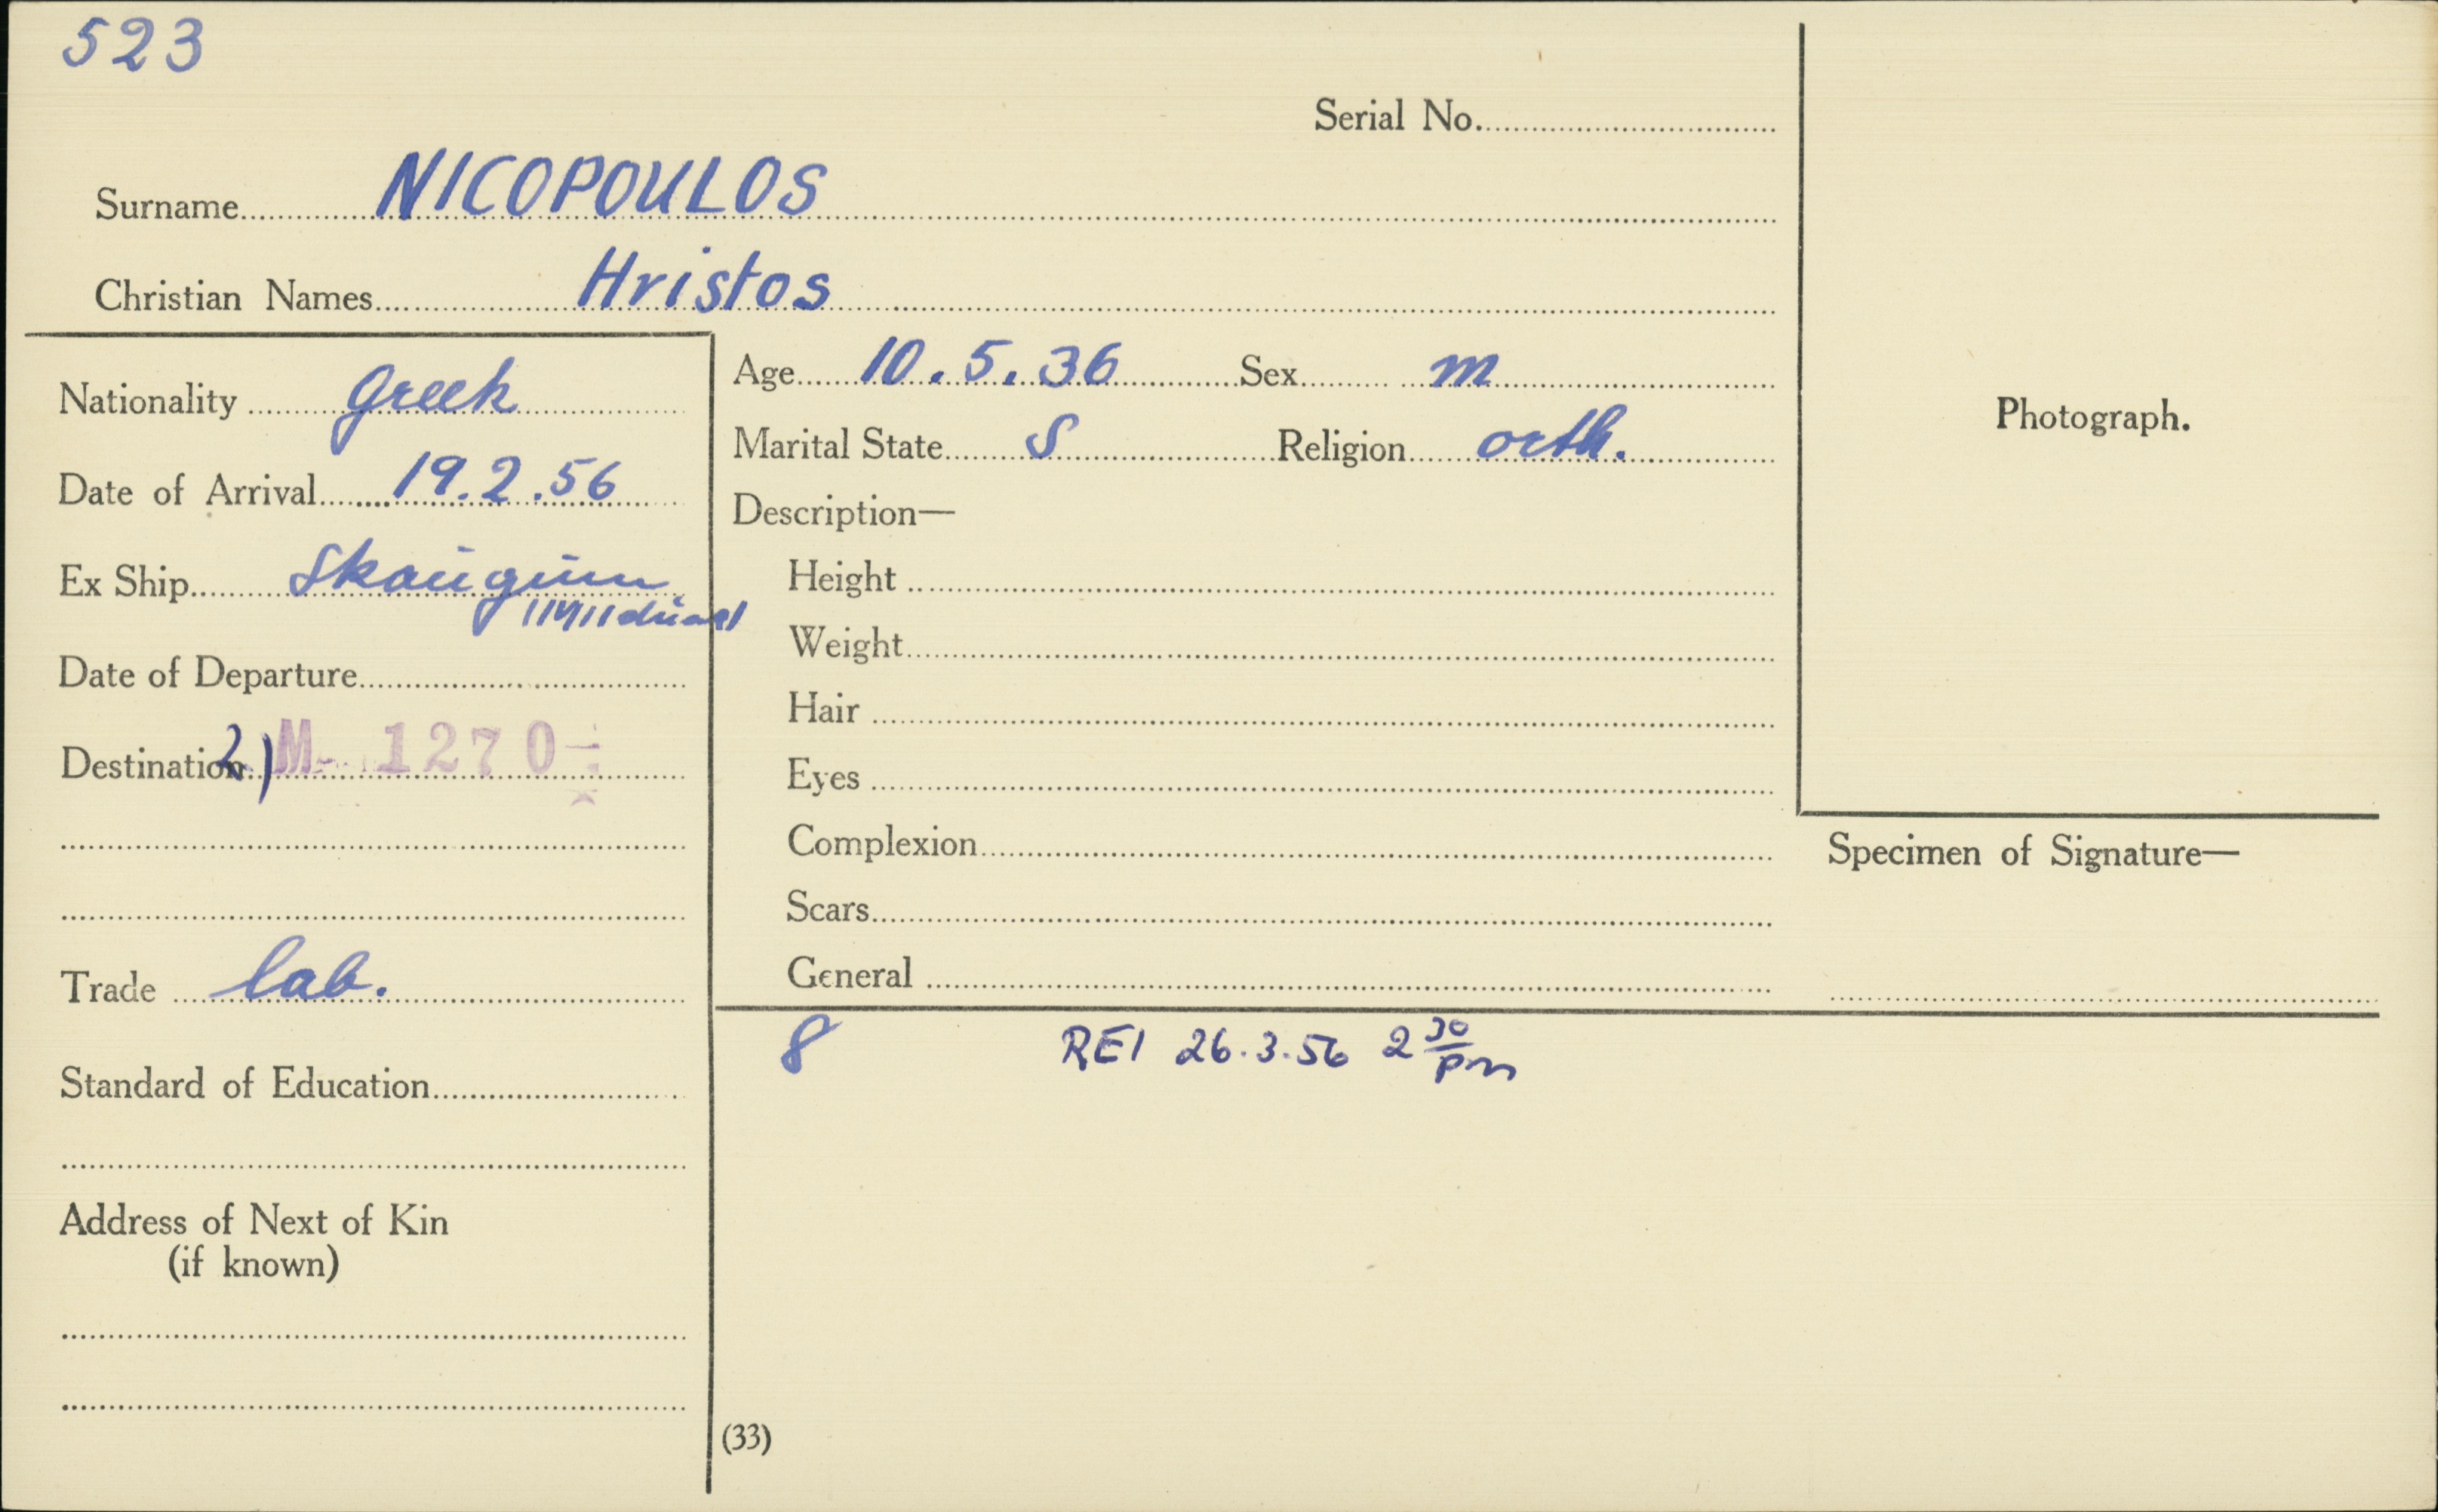 523
Serial No.
Surname NICOPOULOS
Christian Names Hristos
Nationality Greek
Date of Arrival 19.2.56
Ex Ship Skaugum
Date of Departure
Destination 2) M 1270
Trade lab.
Standard of Education
Address of Next of Kin
(if known)
Age 10.5.36 Sex m
Marital State S Religion orth.
Description—
Height
Weight
Hair
Eyes
Complexion
Scars
General
8 REI 26.3.56 2 30 pm
(33)
Photograph.
Specimen of Signature—